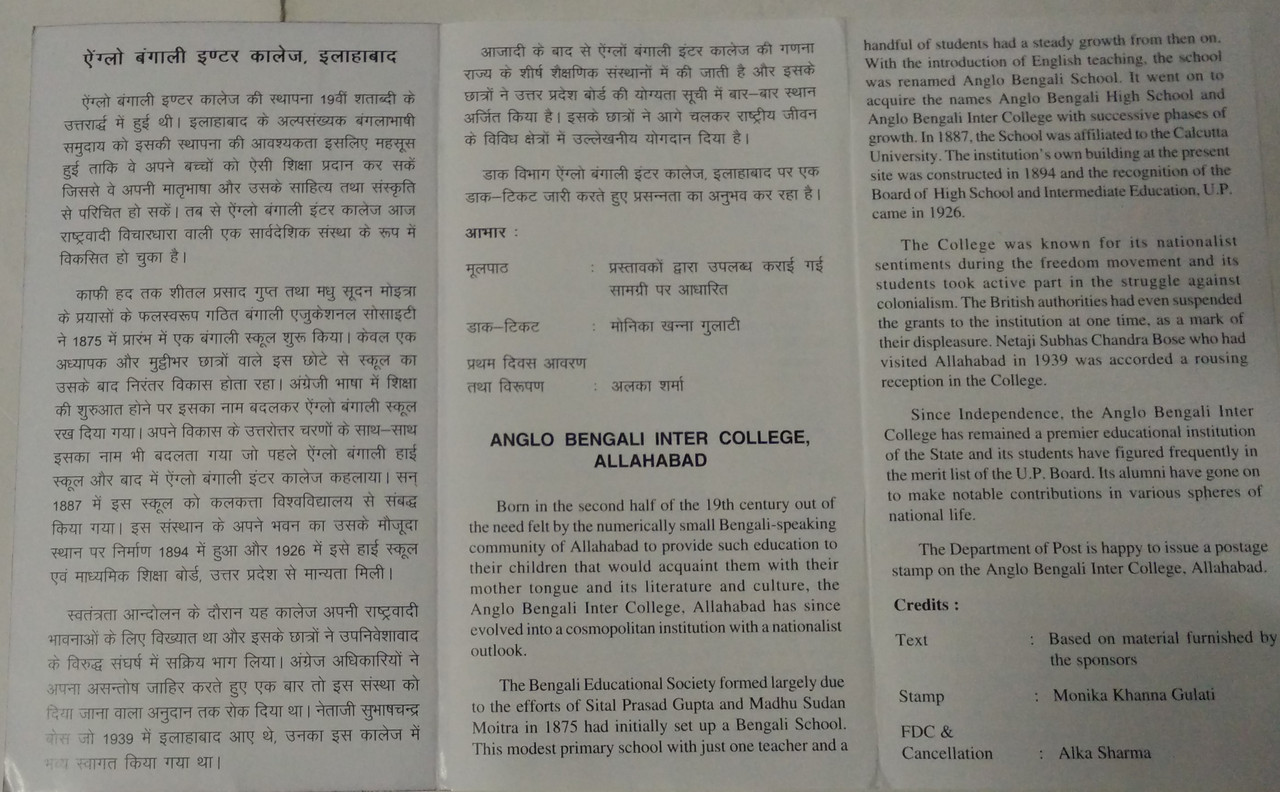 ऐंग्लो बंगाली इण्टर कालेज, इलाहाबाद
ऐंग्लो बंगाली इण्टर कालेज की स्थापना 19वीं शताब्दी के
उत्तरार्द्ध में हुई थी। इलाहाबाद के अल्पसंख्यक बंगलाभाषी
समुदाय को इसकी स्थापना की आवश्यकता इसलिए महसूस
हुई ताकि वे अपने बच्चों को ऐसी शिक्षा प्रदान कर सकें
जिससे वे अपनी मातृभाषा और उसके साहित्य तथा संस्कृति
से परिचित हो सकें। तब से ऐंग्लो बंगाली इंटर कालेज आज
राष्ट्रवादी विचारधारा वाली एक सार्वदेशिक संस्था के रूप में
विकसित हो चुका है।
काफी हद तक शीतल प्रसाद गुप्त तथा मधु सूदन मोइत्रा
के प्रयासों के फलस्वरूप गठित बंगाली एजुकेशनल सोसाइटी
ने 1875 में प्रारंभ में एक बंगाली स्कूल शुरू किया। केवल एक
अध्यापक और मुट्ठीभर छात्रों वाले इस छोटे से स्कूल का
उसके बाद निरंतर विकास होता रहा। अंग्रेजी भाषा में शिक्षा
की शुरुआत होने पर इसका नाम बदलकर ऐंग्लो बंगाली स्कूल
रख दिया गया। अपने विकास के उत्तरोत्तर चरणों के साथ-साथ
इसका नाम भी बदलता गया जो पहले ऐंग्लो बंगाली हाई
स्कूल और बाद में ऐंग्लो बंगाली इंटर कालेज कहलाया। सन्
1887 में इस स्कूल को कलकत्ता विश्वविद्यालय से संबद्ध
किया गया। इस संस्थान के अपने भवन का उसके मौजूदा
स्थान पर निर्माण 1894 में हुआ और 1926 में इसे हाई स्कूल
एवं माध्यमिक शिक्षा बोर्ड, उत्तर प्रदेश से मान्यता मिली।
स्वतंत्रता आन्दोलन के दौरान यह कालेज अपनी राष्ट्रवादी
भावनाओं के लिए विख्यात था और इसके छात्रों ने उपनिवेशवाद
के विरुद्ध संघर्ष में सक्रिय भाग लिया। अंग्रेज अधिकारियों ने
अपना असन्तोष जाहिर करते हुए एक बार तो इस संस्था को
दिया जाना वाला अनुदान तक रोक दिया था। नेताजी सुभाषचन्द्र
बोस जो 1939 में इलाहाबाद आए थे, उनका इस कालेज में
भव्य स्वागत किया गया था।
आजादी के बाद से ऐंग्लों बंगाली इंटर कालेज की गणना
राज्य के शीर्ष शैक्षणिक संस्थानों में की जाती है और इसके
छात्रों ने उत्तर प्रदेश बोर्ड की योग्यता सूची में बार-बार स्थान
अर्जित किया है। इसके छात्रों ने आगे चलकर राष्ट्रीय जीवन
के विविध क्षेत्रों में उल्लेखनीय योगदान दिया है।
डाक विभाग ऐंग्लो बंगाली इंटर कालेज, इलाहाबाद पर एक
डाक-टिकट जारी करते हुए प्रसन्नता का अनुभव कर रहा है।
आभार :
मूलपाठ : प्रस्तावकों द्वारा उपलब्ध कराई गई
सामग्री पर आधारित
डाक-टिकट : मोनिका खन्ना गुलाटी
प्रथम दिवस आवरण
तथा विरूपण : अलका शर्मा
ANGLO BENGALI INTER COLLEGE,
ALLAHABAD
Born in the second half of the 19th century out of
the need felt by the numerically small Bengali-speaking
community of Allahabad to provide such education to
their children that would acquaint them with their
mother tongue and its literature and culture, the
Anglo Bengali Inter College, Allahabad has since
evolved into a cosmopolitan institution with a nationalist
outlook.
The Bengali Educational Society formed largely due
to the efforts of Sital Prasad Gupta and Madhu Sudan
Moitra in 1875 had initially set up a Bengali School.
This modest primary school with just one teacher and a
handful of students had a steady growth from then on.
With the introduction of English teaching, the school
was renamed Anglo Bengali School. It went on to
acquire the names Anglo Bengali High School and
Anglo Bengali Inter College with successive phases of
growth. In 1887, the School was affiliated to the Calcutta
University. The institution's own building at the present
site was constructed in 1894 and the recognition of the
Board of High School and Intermediate Education, U.P.
came in 1926.
The College was known for its nationalist
sentiments during the freedom movement and its
students took active part in the struggle against
colonialism. The British authorities had even suspended
the grants to the institution at one time, as a mark of
their displeasure. Netaji Subhas Chandra Bose who had
visited Allahabad in 1939 was accorded a rousing
reception in the College.
Since Independence, the Anglo Bengali Inter
College has remained a premier educational institution
of the State and its students have figured frequently in
the merit list of the U.P. Board. Its alumni have gone on
to make notable contributions in various spheres of
national life.
The Department of Post is happy to issue a postage
stamp on the Anglo Bengali Inter College, Allahabad.
Credits :
Text : Based on material furnished by
the sponsors
Stamp : Monika Khanna Gulati
FDC &
Cancellation : Alka Sharma